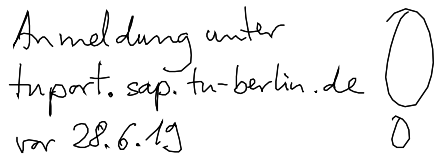 Anmeldung unter
tuport.sap.tu-berlin.de
vor 28.6.19 !